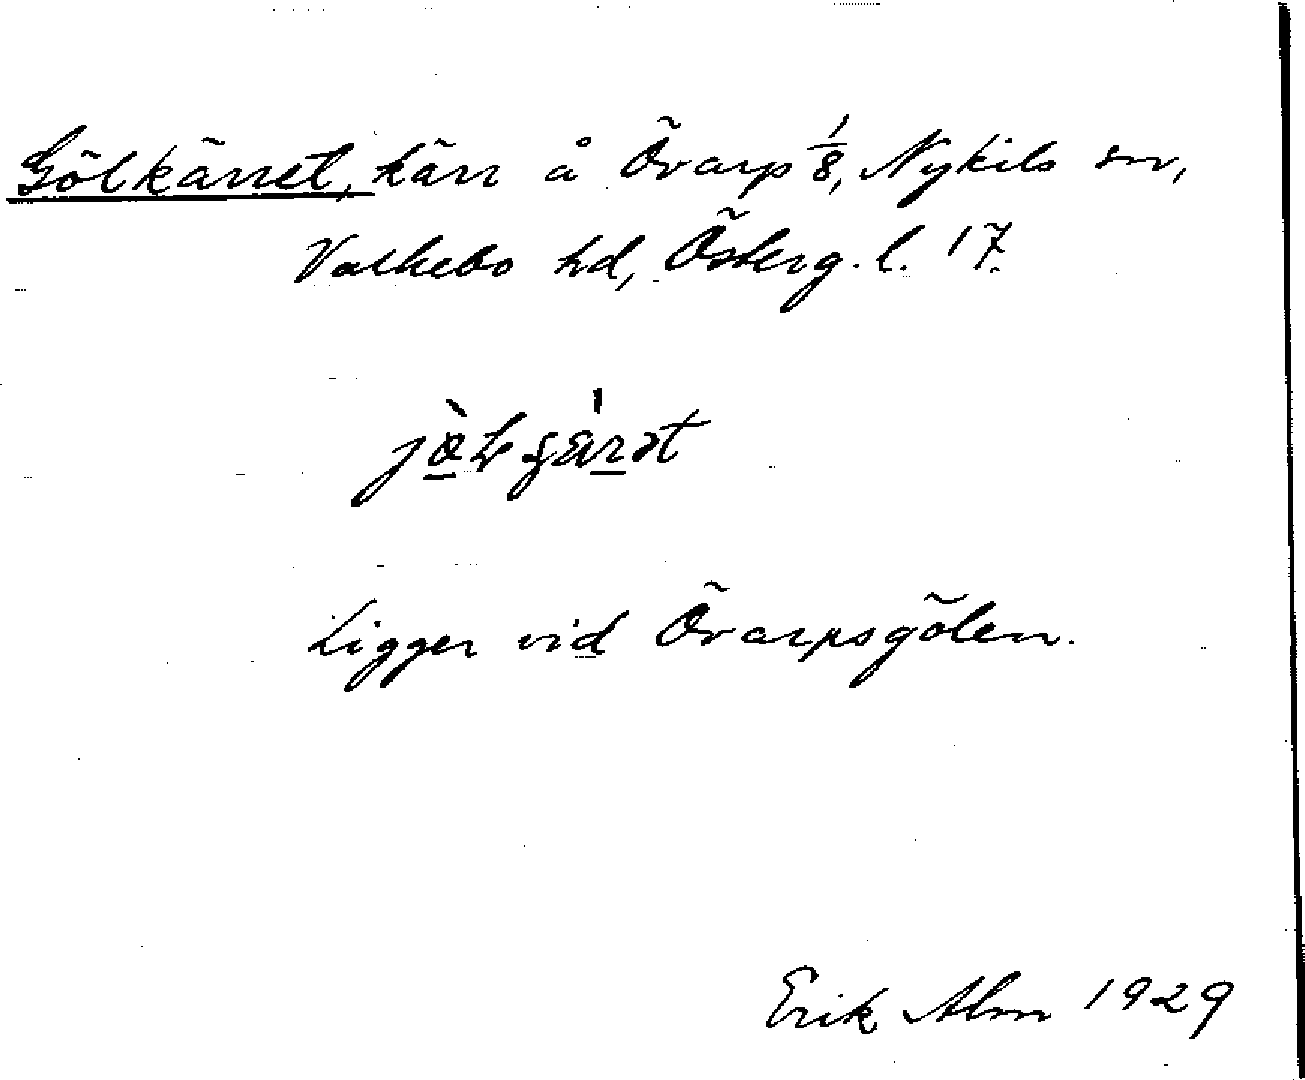 Gölkärret, kärr å Övarp 1/8, Nykils sn,
Valkebo hd, Österg. l. 17.
Ligger vid Övarpsgölen.
Erik Alm 1929